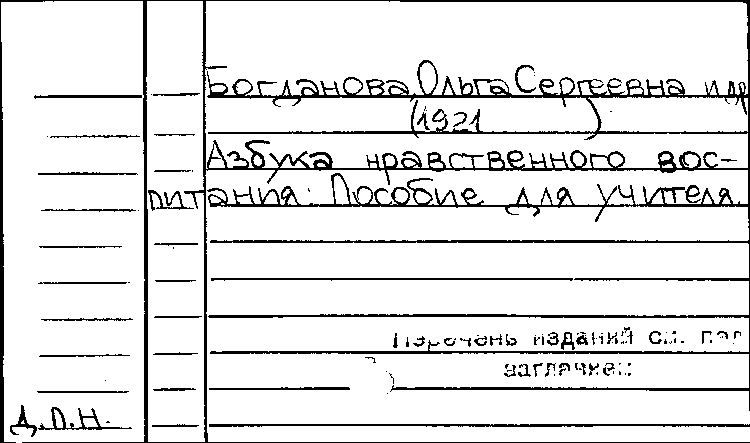 Богданова, Ольга Сергеевна и др
(1921 )
Азбука нравственного вос-
питания: Пособие для учителя.
Перечень изданий см. под
заглавием
Д.П.Н.